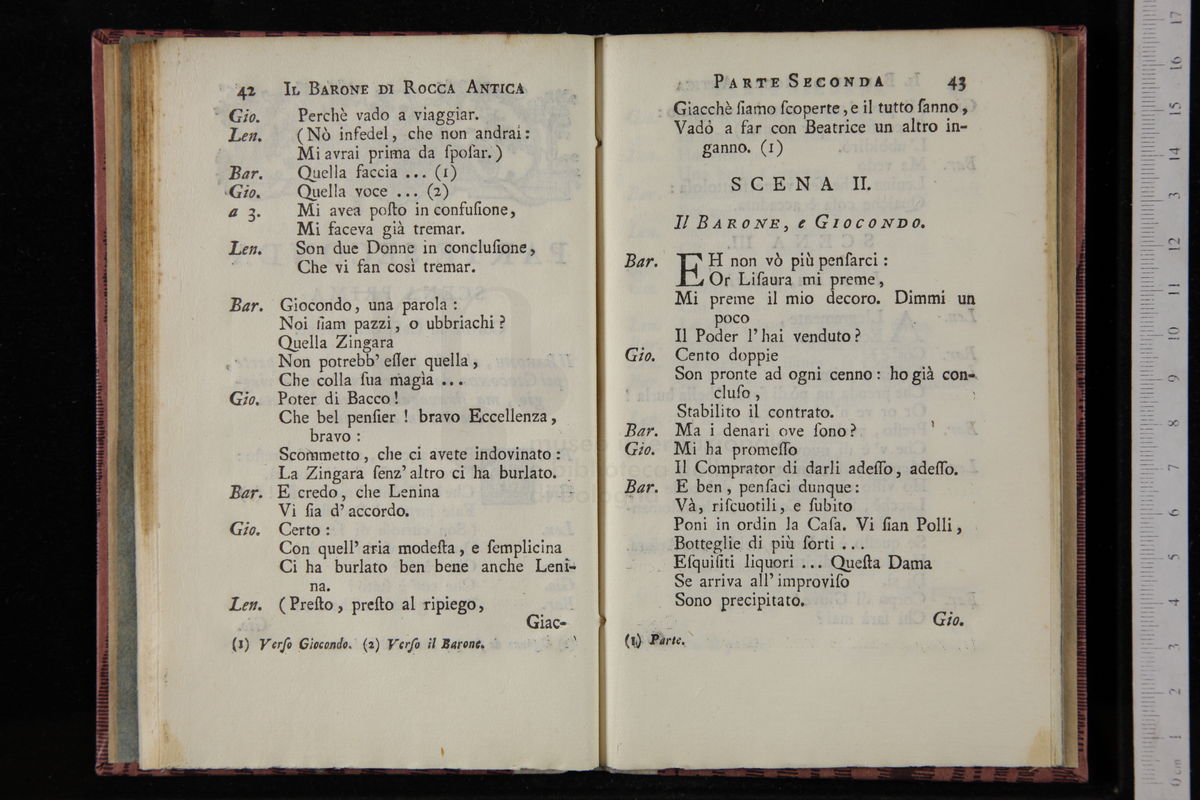 42 IL BARONE DI ROCCA ANTICA
Gio. Perchè vado a viaggiar.
Len. (Nò infedel, che non andrai:
Mi avrai prima da ſpoſar.)
Bar. Quella faccia ... (1)
Gio. Quella voce ... (2)
a 3. Mi avea poſto in confuſione,
Mi faceva già tremar.
Len. Son due Donne in concluſione,
Che vi fan così tremar.
Bar. Giocondo, una parola:
Noi ſiam pazzi, o ubbriachi?
Quella Zingara
Non potrebb' eſſer quella,
Che colla ſua magìa ...
Gio. Poter di Bacco!
Che bel penſier! bravo Eccellenza,
bravo:
Scommetto, che ci avete indovinato:
La Zingara ſenz' altro ci ha burlato.
Bar. E credo, che Lenina
Vi ſia d' accordo.
Gio. Certo:
Con quell' aria modeſta, e ſemplicina
Ci ha burlato ben bene anche Leni-
na.
Len. (Preſto, preſto al ripiego,
Giac-
(1) Verſo Giocondo. (2) Verſo il Barone.
PARTE SECONDA 43
Giacchè ſiamo ſcoperte, e il tutto ſanno,
Vadò a far con Beatrice un altro in-
ganno. (1)
SCENA II.
Il BARONE, e GIOCONDO.
Bar. EH non vò più penſarci:
Or Liſaura mi preme,
Mi preme il mio decoro. Dimmi un
poco
Il Poder l' hai venduto?
Gio. Cento doppie
Son pronte ad ogni cenno: ho già con-
cluſo,
Stabilito il contrato.
Bar. Ma i denari ove ſono?
Gio. Mi ha promeſſo
Il Comprator di darli adeſſo, adeſſo.
Bar. E ben, penſaci dunque:
Và, riſcuotili, e ſubito
Poni in ordin la Caſa. Vi ſian Polli,
Botteglie di più ſorti ...
Eſquiſiti liquori ... Queſta Dama
Se arriva all' improviſo
Sono precipitato.
Gio.
(1) Parte.
museo
biblioteca
di Bologna
17
16
15
14
13
12
11
10
9
8
7
6
5
4
3
2
1
0 cm